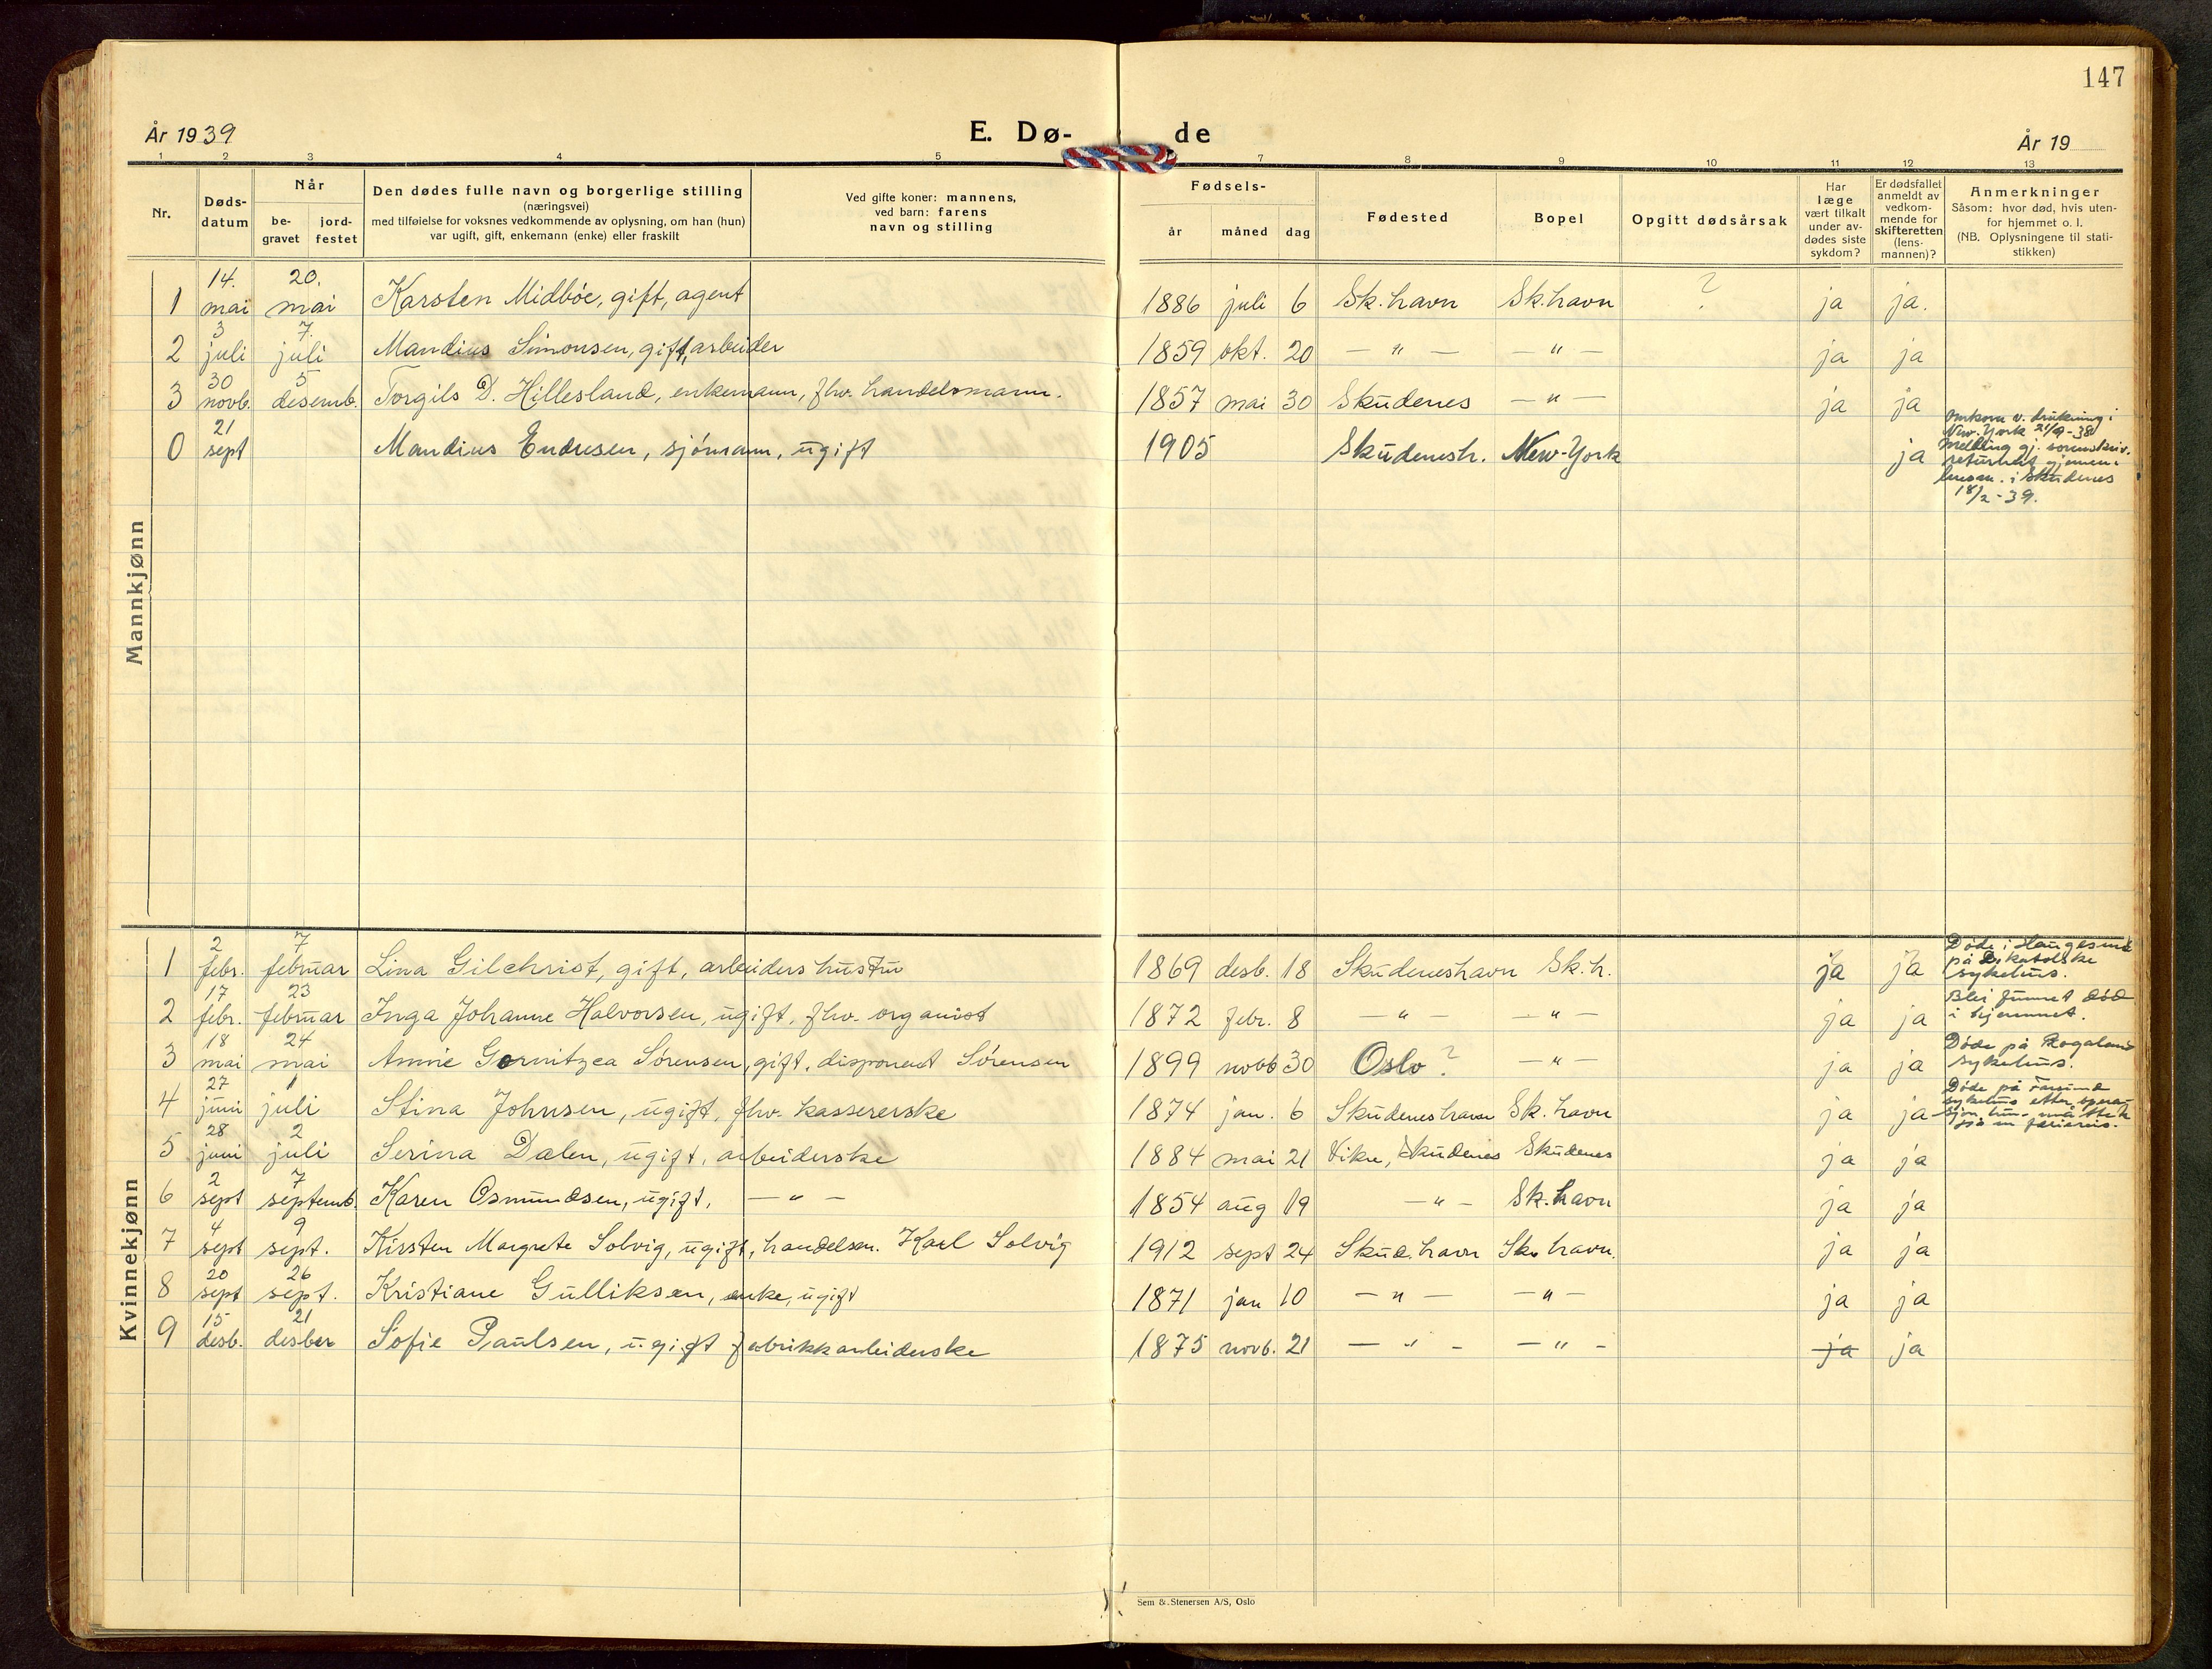 147
År 1939
E. Dø-
de
År 19
1 2 3 4 5 7 8 9 10 11 12 13
Nr.
Døds-
datum
Når
be-
gravet
jord-
festet
Den dødes fulle navn og borgerlige stilling
(næringsvei)
med tilføielse for voksnes vedkommende av oplysning, om han (hun)
var ugift, gift, enkemann (enke) eller fraskilt
Ved gifte koner: mannens,
ved barn: farens
navn og stilling
Fødsels-
år måned dag
Fødested
Bopel
Opgitt dødsårsak
Har
læge
vært tilkalt
under av-
dødes siste
sykdom?
Er dødsfallet
anmeldt av
vedkom-
mende for
skifteretten
(lens-
mannen)?
Anmerkninger
Såsom: hvor død, hvis uten-
for hjemmet o. l.
(NB. Oplysningene til stati-
stikken)
Mannkjønn
14. 20.
1 mai mai Karsten Midbøe, gift, agent 1886 juli 6 Sk.havn Sk.havn ? ja ja.
3 7.
2 juli juli Mandius Simonsen, gift, arbeider 1859 okt. 20 — " — — " — ja ja
30 5
3 novb. desemb. Torgils D. Hillesland, enkemann, fhv. handelsmann. 1857 mai 30 Skudenes — " — ja ja
21
0 sept Mandius Endresen, sjømann, ugift 1905 Skudenesh. New-York ja
Omkom v. drukning i
New-York 21/9-38
Melding gj. sorenskriv.
returnert gjennem
lensm. i Skudenes
18/2-39.
Kvinnekjønn
2 7
1 febr. februar Lina Gilchrist, gift, arbeiders hustru 1869 desb. 18 Skudeneshavn Sk.h. ja ja
Døde i Haugesund
på D. katolske
sykehus.
17 23
2 febr. februar Inga Johanne Halvorsen, ugift, fhv. organist 1872 febr. 8 — " — — " — ja ja
Blei funnet død
i hjemmet.
18 24
3 mai mai Annie Gornitzca Sørensen, gift, disponent Sørensen 1899 novb 30 Oslo? — " — ja ja
Døde på Rogaland
sykehus.
27 1
4 juni juli Stina Johnsen, ugift, fhv. kassererske 1874 jan. 6 Skudeneshavn Sk. havn ja ja
Døde på
sykehus etter opera-
sjon, hun
på en feriereis.
28 2
5 juni juli Serina Dalen, ugift, arbeiderske 1884 mai 21 Vikre, Skudenes Skudenes ja ja
2 7
6 sept septemb. Karen Osmundsen, ugift, — " — 1854 aug 19 — " — Sk.havn ja ja
4 9
7 sept sept. Kirsten Margrete Solvig, ugift, handelsm. Karl Solvig 1912 sept 24 Skud.havn Sk. havn. ja ja
20 26
8 sept sept. Kristiane Gulliksen, enke, ugift 1871 jan 10 — " — — " — ja ja
15 21
9 desb. desber Sofie Paulsen, ugift fabrikkarbeiderske 1875 novb. 21 — " — — " — ja ja
Sem & Stenersen A/S, Oslo